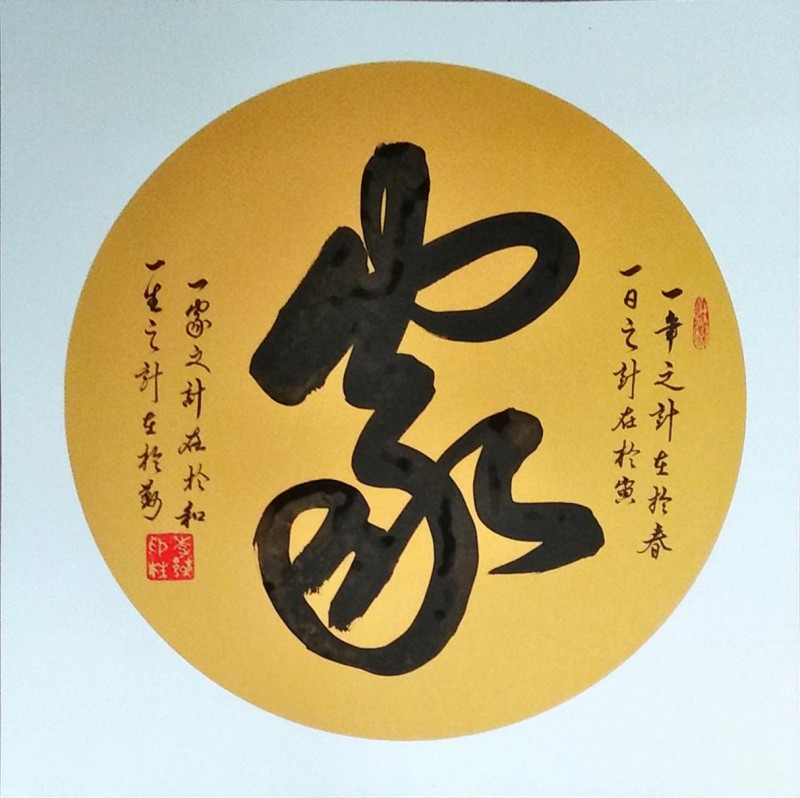 一年之計在於春
一日之計在於寅
家
一家之計在於和
一生之計在於勤